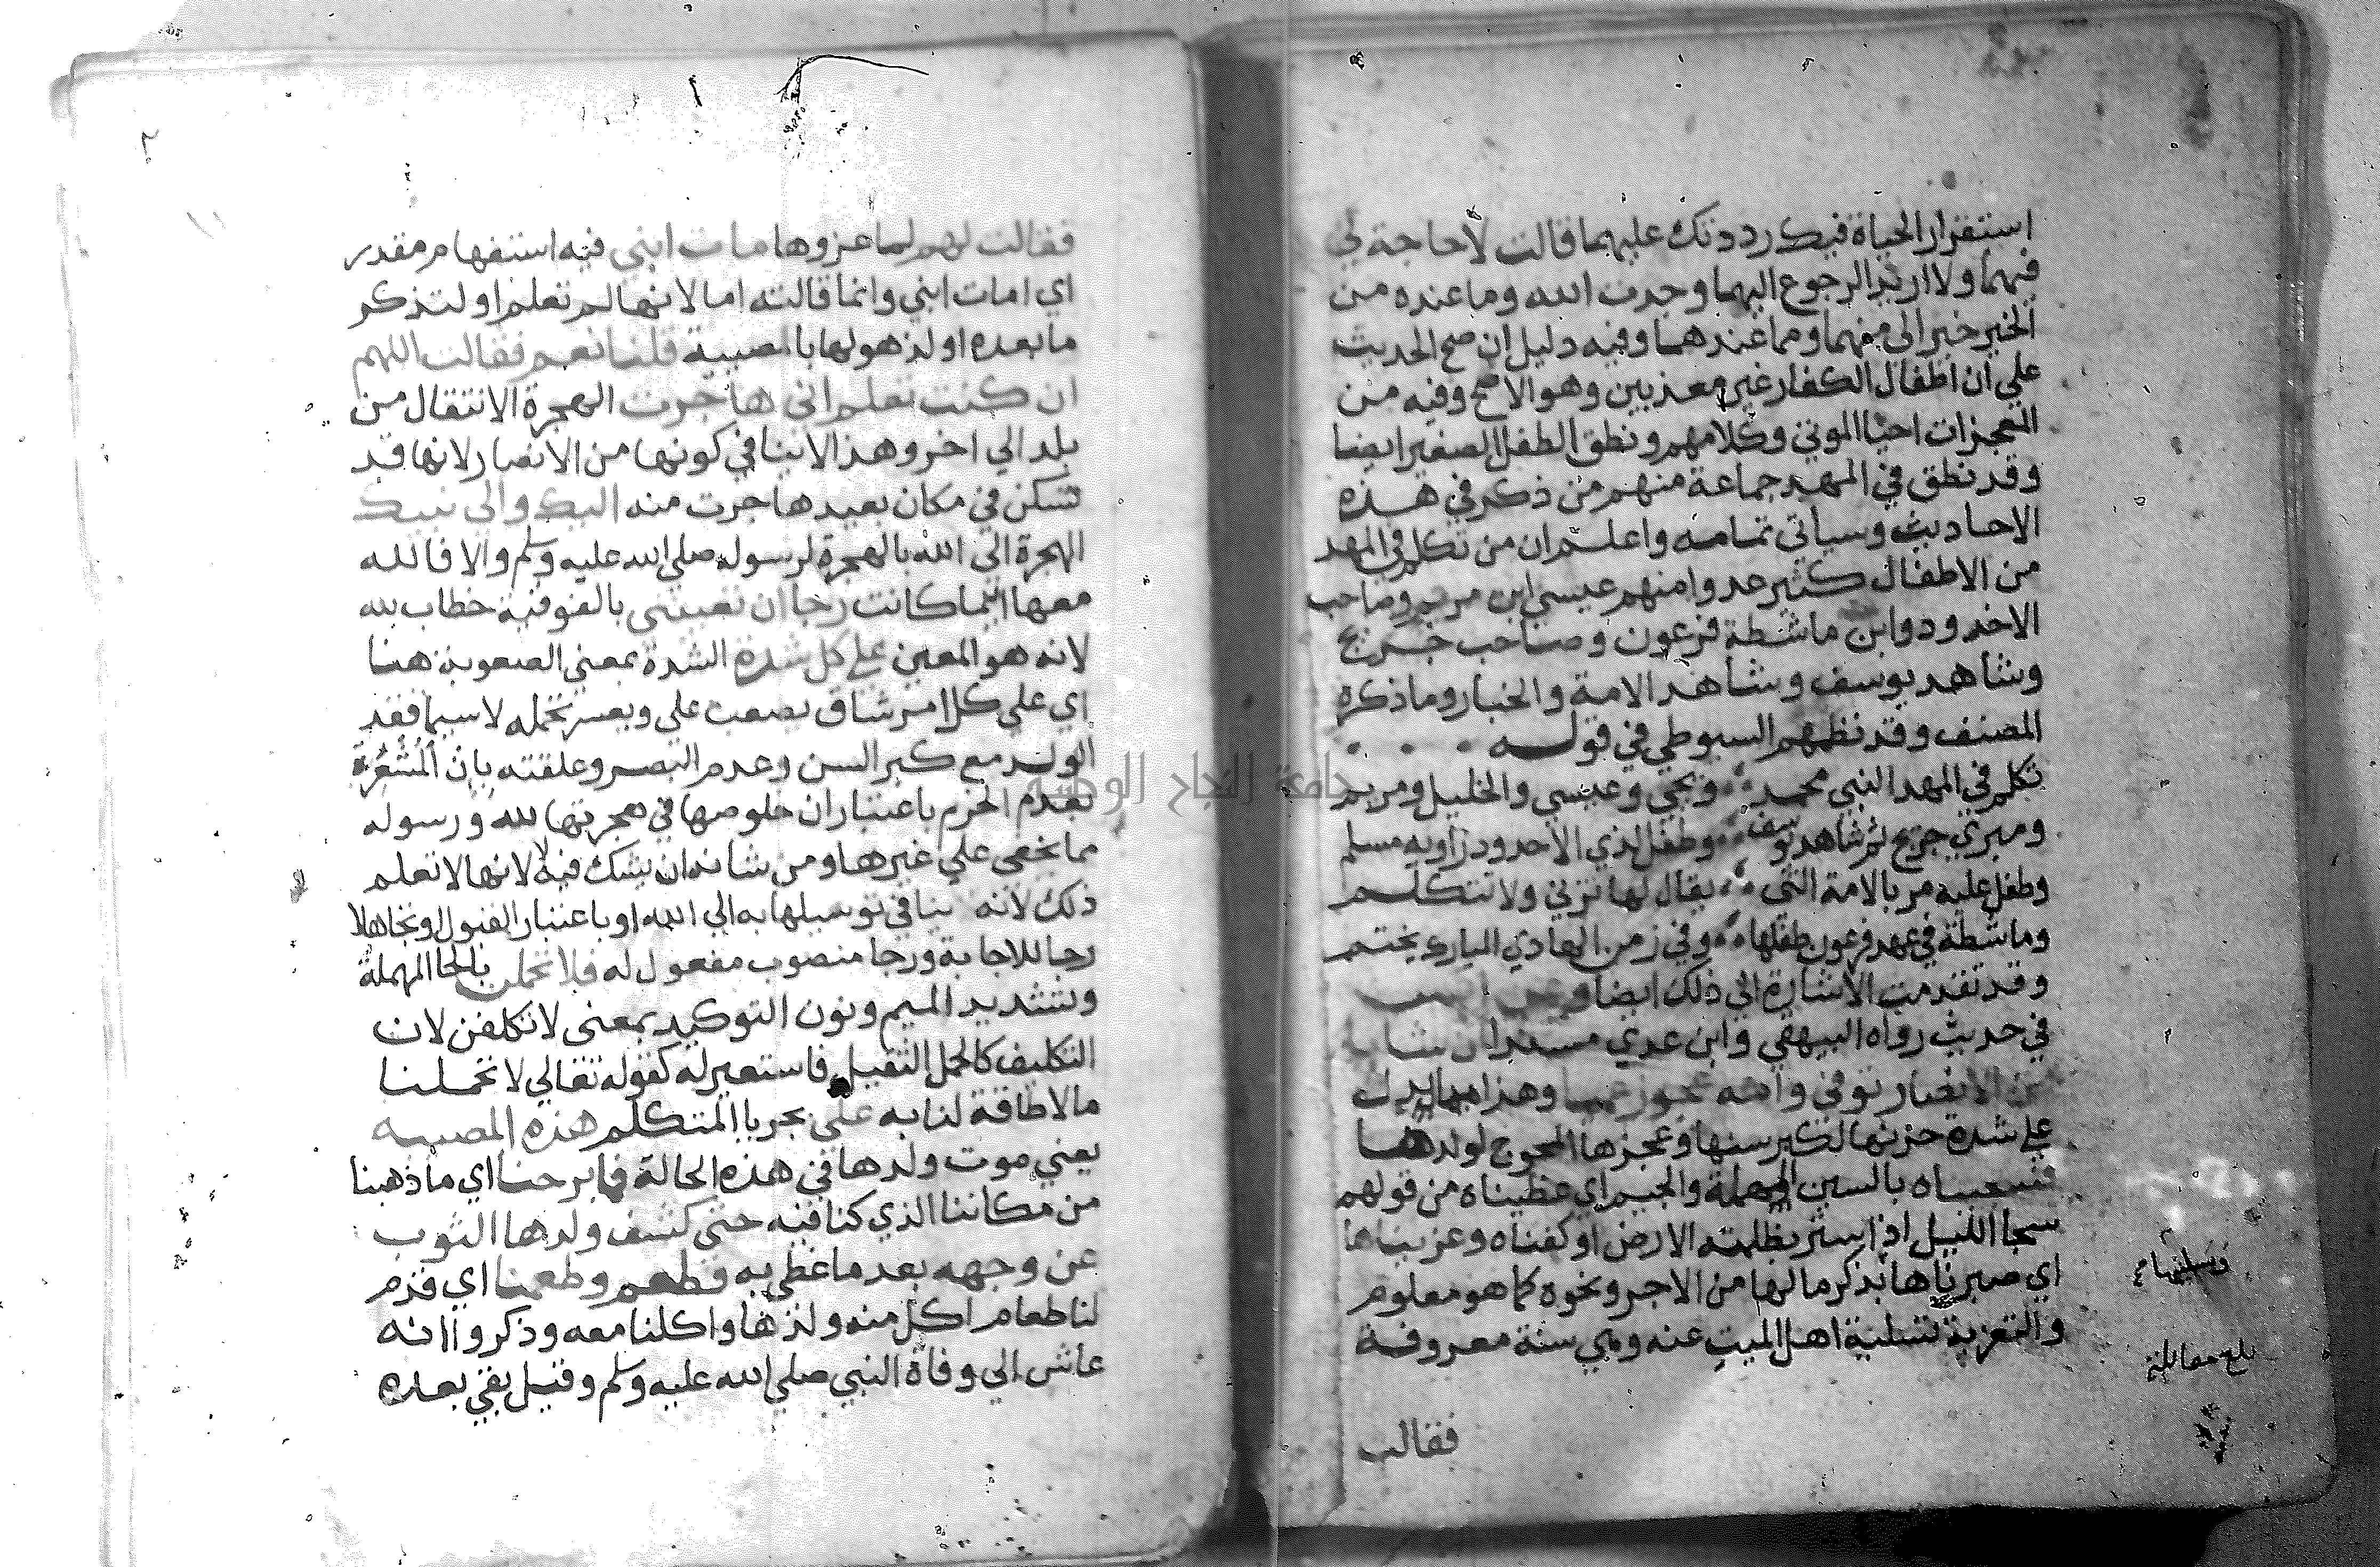 استقرار الحياة فيك رددتك عليهما قالت لا حاجة لي
فيهما ولا اريد الرجوع اليهما وجدت الله وما عنده من
الخير خير الي منهما ومما عندهما وفيه دليل ان صح الحديث
علي ان اطفال الكفار غير معذبين وهو الاصح وفيه من
المعجزات احيا الموتي وكلامهم ونطق الطفل الصغير ايضا
وقد نطق في المهد جماعة منهم من ذكر في هذه
الاحاديث وسياتي تمامه واعلم ان من تكلم في المهد
من الاطفال كثير عدوا منهم عيسي ابن مريم وصاحب
الاخدود وابن ماشطة فرعون وصاحب جريج
وشاهد يوسف وشاهد الامة والخبار وما ذكره
المصنف وقد نظمهم السيوطي في قوله
تكلم في المهد النبي محمد ويحي وعيسي والخليل ومريم
ومبري جريج ثم شاهد يوسف وطفل لذي الاخدود يرويه مسلم
وطفل عليه مر بالامة التي يقال لها تزني ولا تتكلم
وماشطة في عهد فرعون طفلها وفي زمن الهادي المبارك يختم
وقد تقدمت الاشارة الي ذلك ايضا وعن انس
في حديث رواه البيهقي وابن عدي مسندا ان شابا
من الانصار توفي وامه عجوز عميا وهذا مما يدل
علي شدة حزنها لكبر سنها وعجزها المحوج لولدها
فسجيناه بالسين المهملة والجيم اي غطيناه من قولهم
سجا الليل اذا ستر بظلمته الارض او كفناه وعزيناها
اي صبرناها بذكر ما لها من الاجر ونحوه كما هو معلوم
والتعزية تسلية اهل الميت عنه وهي سنة معروفة
وسليناها
بلغ مقابلة
فقالت
٢
فقالت لهم لما عزوها مات ابني فيه استفهام مقدر
اي امات ابني وانما قالته اما لانها لم تعلم او لتذكر
ما بعده او لذهولها بالمصيبة قلنا نعم فقالت اللهم
ان كنت تعلم اني هاجرت الهجرة الانتقال من
بلد الي اخر وهذا لا ينافي كونها من الانصار لانها قد
تسكن في مكان بعيد هاجرت منه اليك والي نبيك
الهجرة الي الله بالهجرة لرسوله صلي الله عليه وسلم والا فالله
معها اينما كانت رجا ان تعينني بالفوقية خطاب لله
لانه هو المعين علي كل شدة الشدة بمعني الصعوبة هنا
اي علي كل امر شاق يصعب علي ويعسر تحمله لا سيما فقد
الولد مع كبر السن وعدم البصر وعلقته بان المشعرة
بعدم الجزم باعتبار ان خلوصها في هجرتها لله ورسوله
مما يخفي علي غيرها ومن شانه ان يشك فيه لا لانها لا تعلم
ذلك لانه ينافي توسيلها به الي الله او باعتبار القبول او تجاهلا
رجا للاجابة ورجا منصوب مفعول له فلا تحملن بالحا المهملة
وتشديد الميم ونون التوكيد بمعني لا تكلفن لان
التكليف كالحمل الثقيل فاستعير له كقوله تعالي لا تحملنا
ما لا طاقة لنا به علي بجر يا المتكلم هذه المصيبه
يعني موت ولدها في هذه الحالة فما برحنا اي ما ذهبنا
من مكاننا الذي كنا فيه حتي كشف ولدها الثوب
عن وجهه بعد ما غطي به فطعم وطعمنا اي قدم
لنا طعام اكل منه ولدها واكلنا معه وذكروا انه
عاش الي وفاة النبي صلي الله عليه وسلم وقيل بقي بعده
جامعة النجاح الوطنية